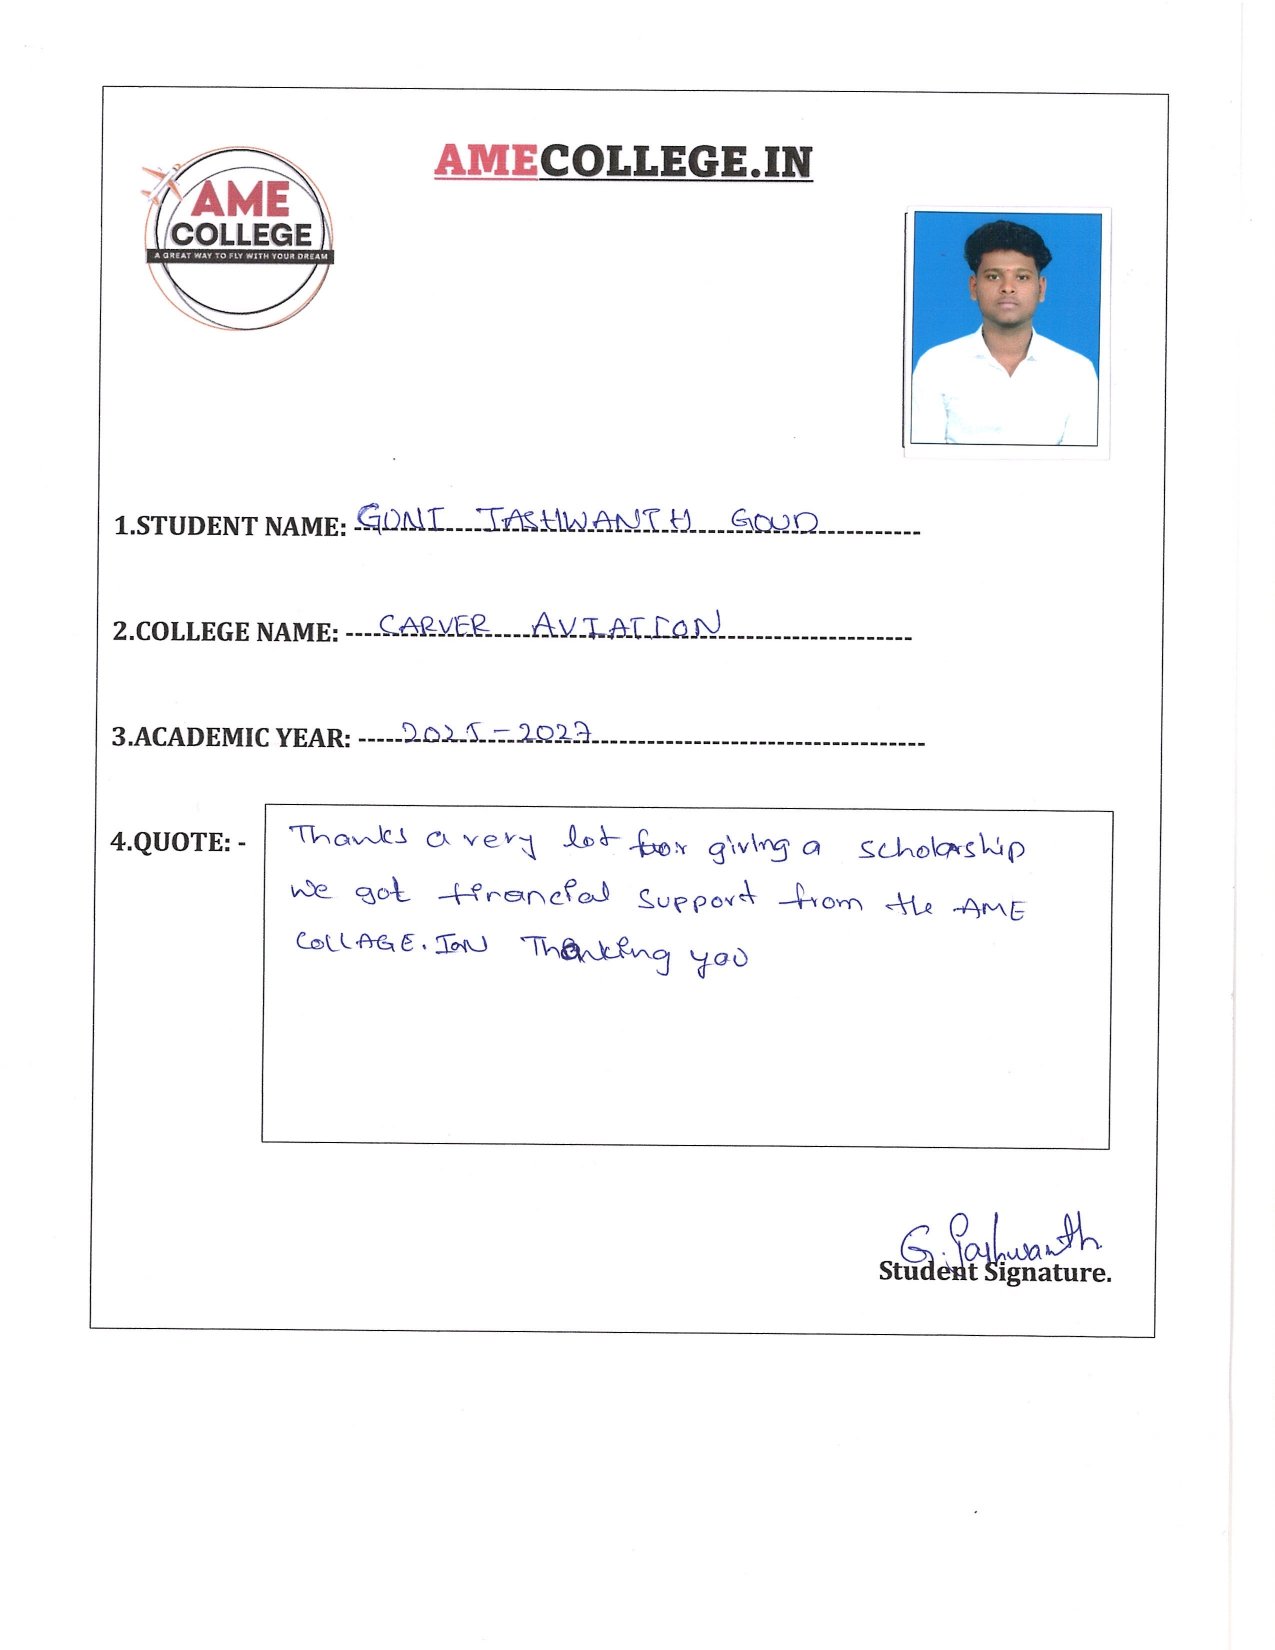 AMECOLLEGE.IN
AME
COLLEGE
A GREAT WAY TO FLY WITH YOUR DREAM
1.STUDENT NAME: GUNI JASHWANTH GOUD
2.COLLEGE NAME: CARVER AVIATION
3.ACADEMIC YEAR: 2025-2027
4.QUOTE: - Thanks a very lot for giving a scholarship
we got financial support from the AME
COLLAGE.ION Thanking you
G. Jashwanth
Student Signature.